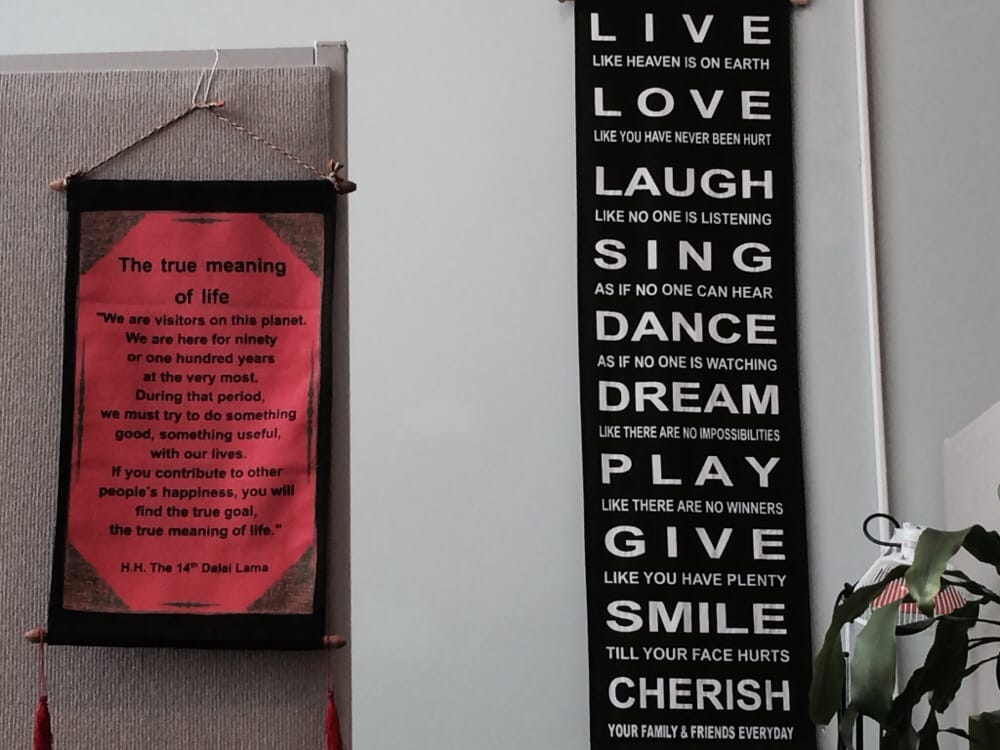 The true meaning
of life
"We are visitors on this planet.
We are here for ninety
or one hundred years
at the very most.
During that period,
we must try to do something
good, something useful,
with our lives.
If you contribute to other
people's happiness, you will
find the true goal,
the true meaning of life."
H.H. The 14th Dalai Lama
LIVE
LIKE HEAVEN IS ON EARTH
LOVE
LIKE YOU HAVE NEVER BEEN HURT
LAUGH
LIKE NO ONE IS LISTENING
SING
AS IF NO ONE CAN HEAR
DANCE
AS IF NO ONE IS WATCHING
DREAM
LIKE THERE ARE NO IMPOSSIBILITIES
PLAY
LIKE THERE ARE NO WINNERS
GIVE
LIKE YOU HAVE PLENTY
SMILE
TILL YOUR FACE HURTS
CHERISH
YOUR FAMILY & FRIENDS EVERYDAY